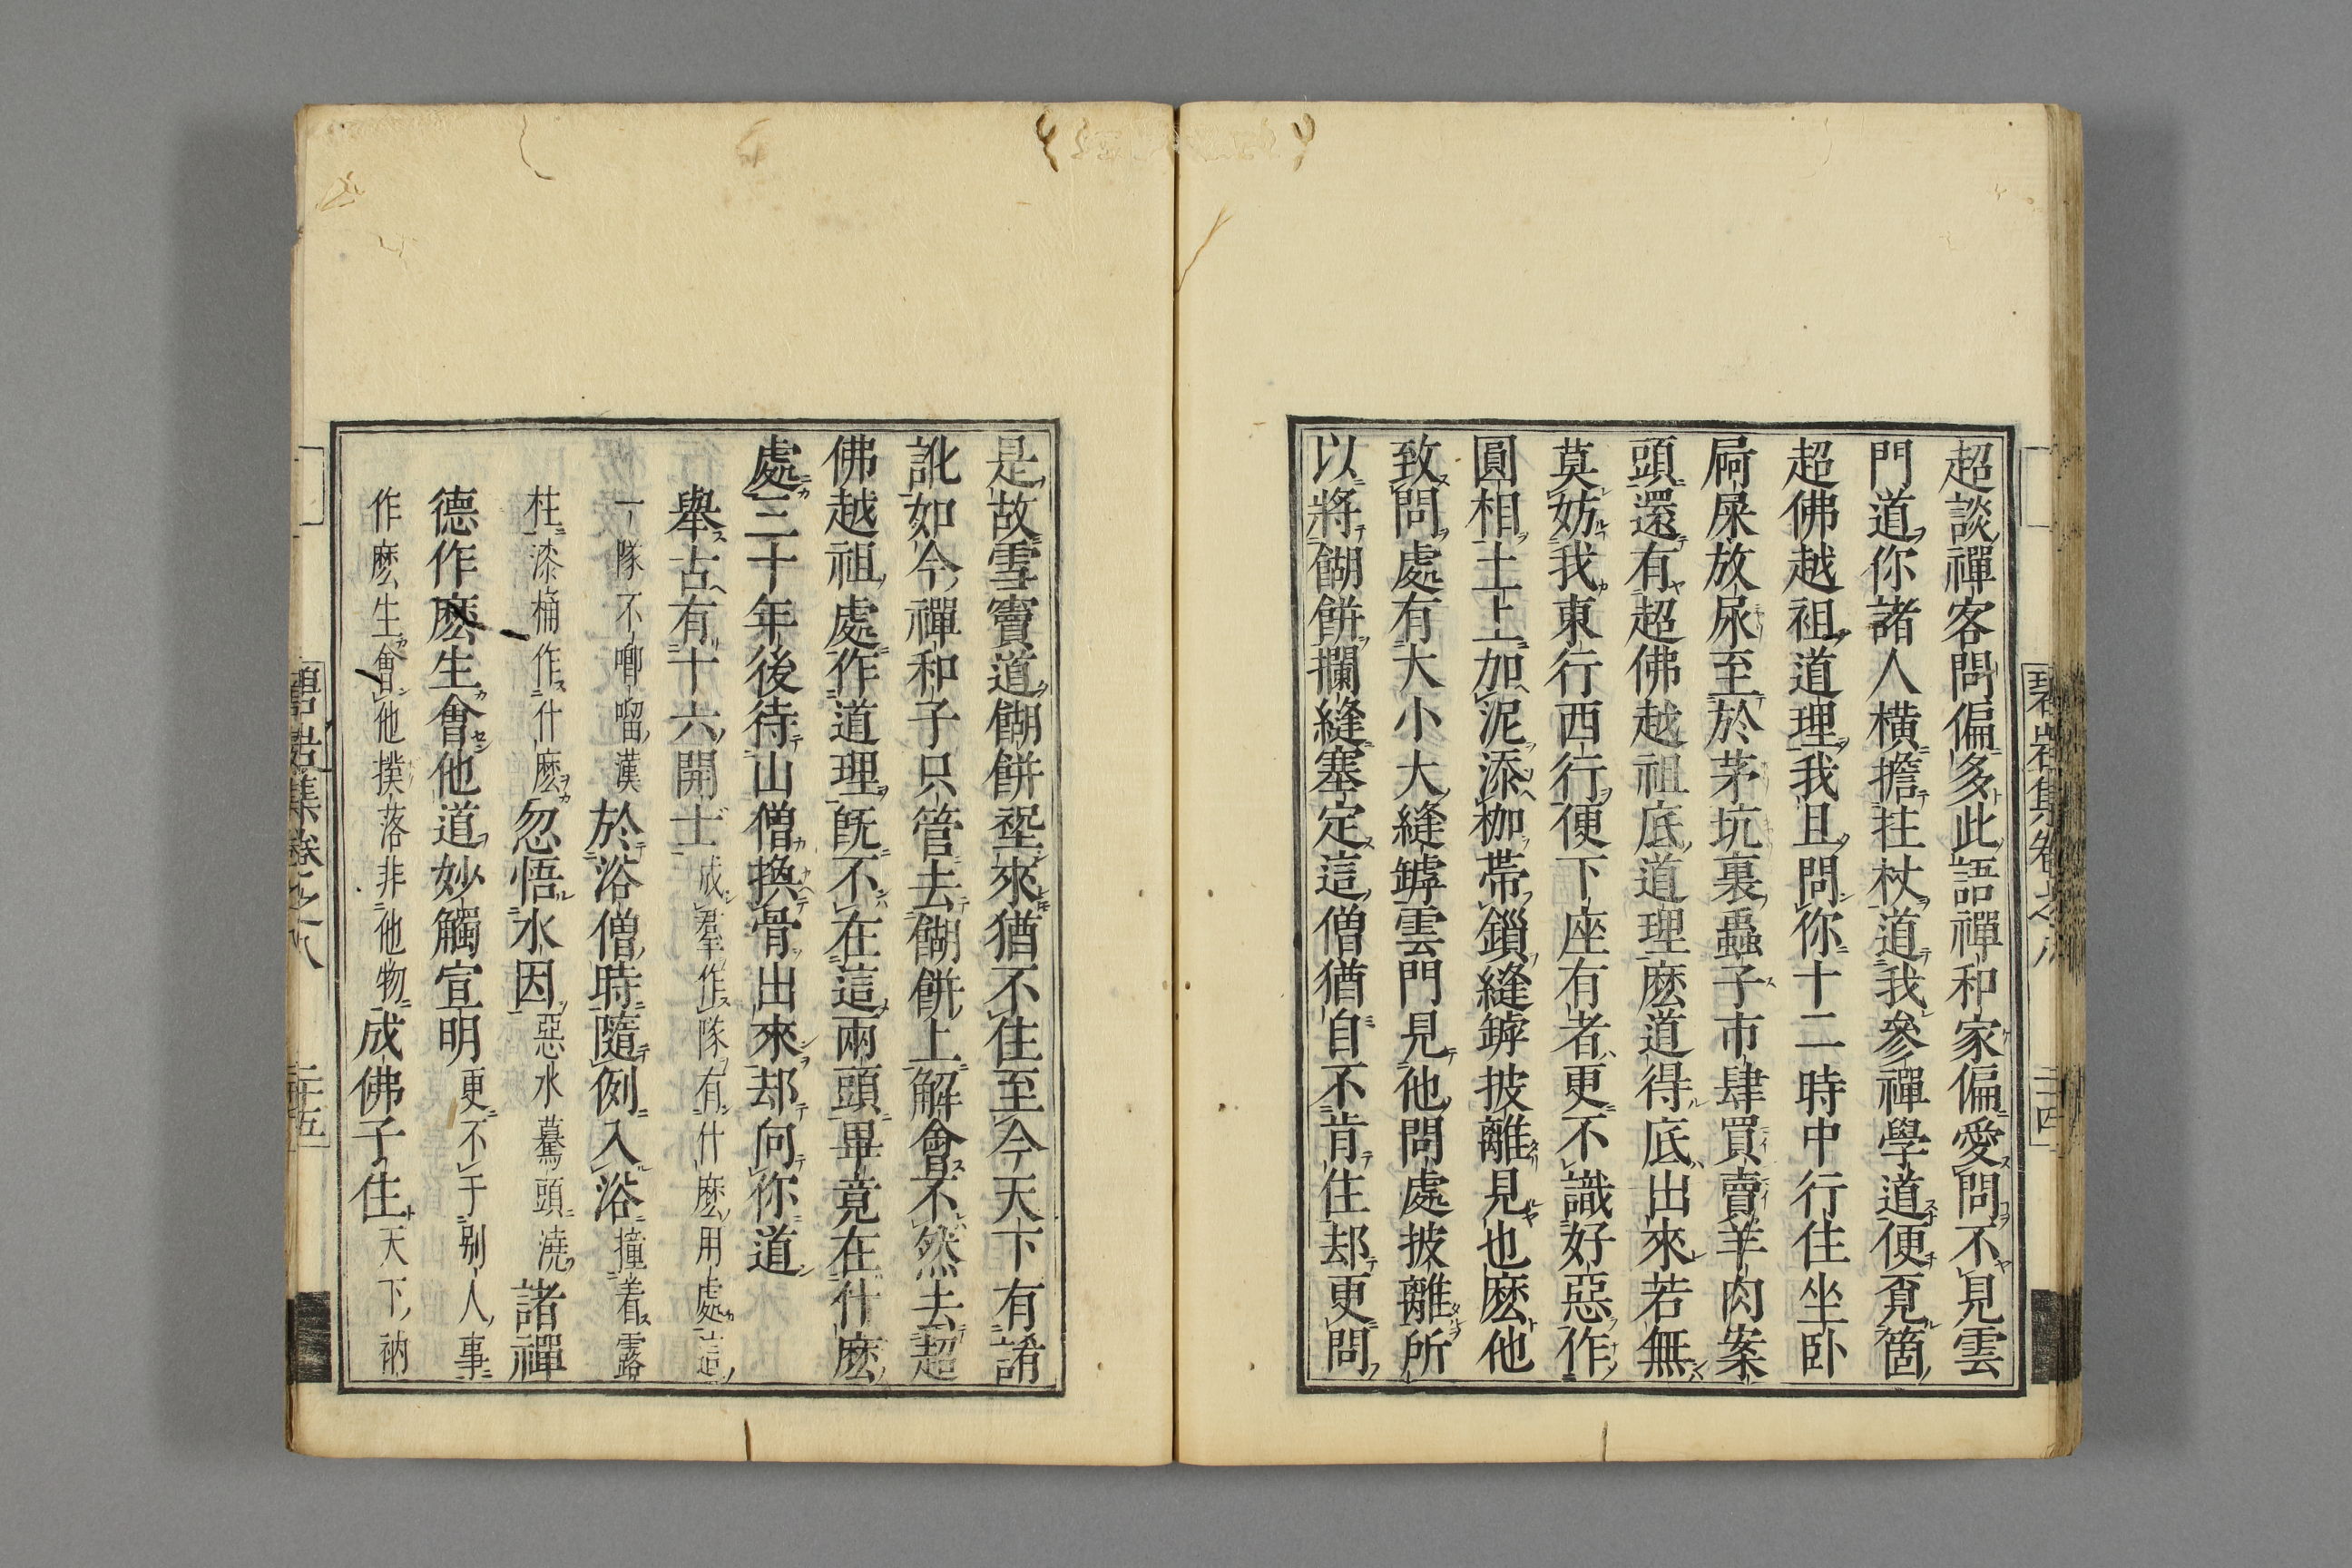 超談禪客問偏多此語禪和家偏愛問不見雲
門道你諸人橫擔拄杖道我參禪學道便覓箇
超佛越祖道理我且問你十二時中行住坐臥
屙屎放尿至於茅坑裏蟲子市肆買賣羊肉案
頭還有超佛越祖底道理麽道得底出來若無
莫妨我東行西行便下座有者更不識好惡作
圓相土上加泥添枷帶鎖縫罅披離見也麽他
致問處有大小大縫罅雲門見他問處披離所
以將餬餅攔縫塞定這僧猶自不肯住却更問
碧岩集卷之八
二十四
是故雪竇道餬餅𡎺來猶不住至今天下有誵
訛如今禪和子只管去餬餅上解會不然去超
佛越祖處作道理既不在這兩頭畢竟在什麽
處三十年後待山僧換骨出來却向你道
舉古有十六開士成羣作隊有什麽用處這
一隊不唧㗂漢於浴僧時隨例入浴撞着露
柱漆桶作什麽忽悟水因惡水驀頭澆諸禪
德作麽生會他道妙觸宣明更不干別人事
作麽生會他撲落非他物成佛子住天下衲
碧岩集卷之八
二十五